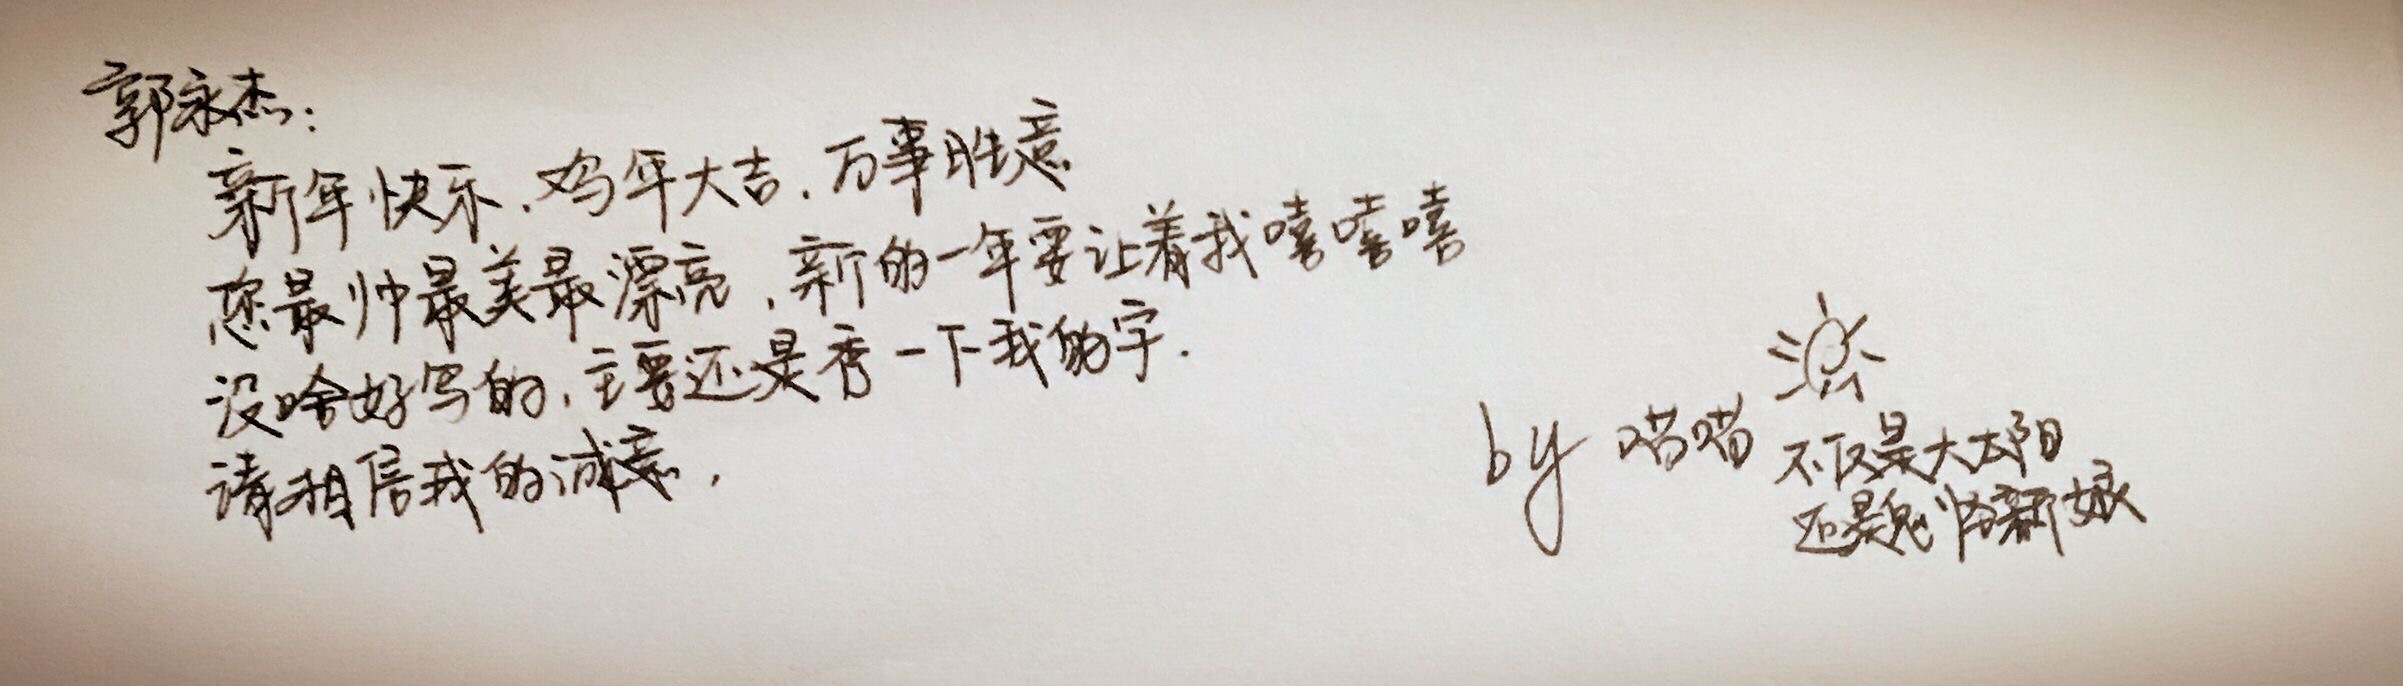 郭永杰:
新年快乐.鸡年大吉.万事胜意
您最帅最美最漂亮,新的一年要让着我嘻嘻嘻
没啥好写的,主要还是秀一下我的字.
请相信我的诚意,
by 喵喵
不仅是大太阳
还是鬼怪新娘